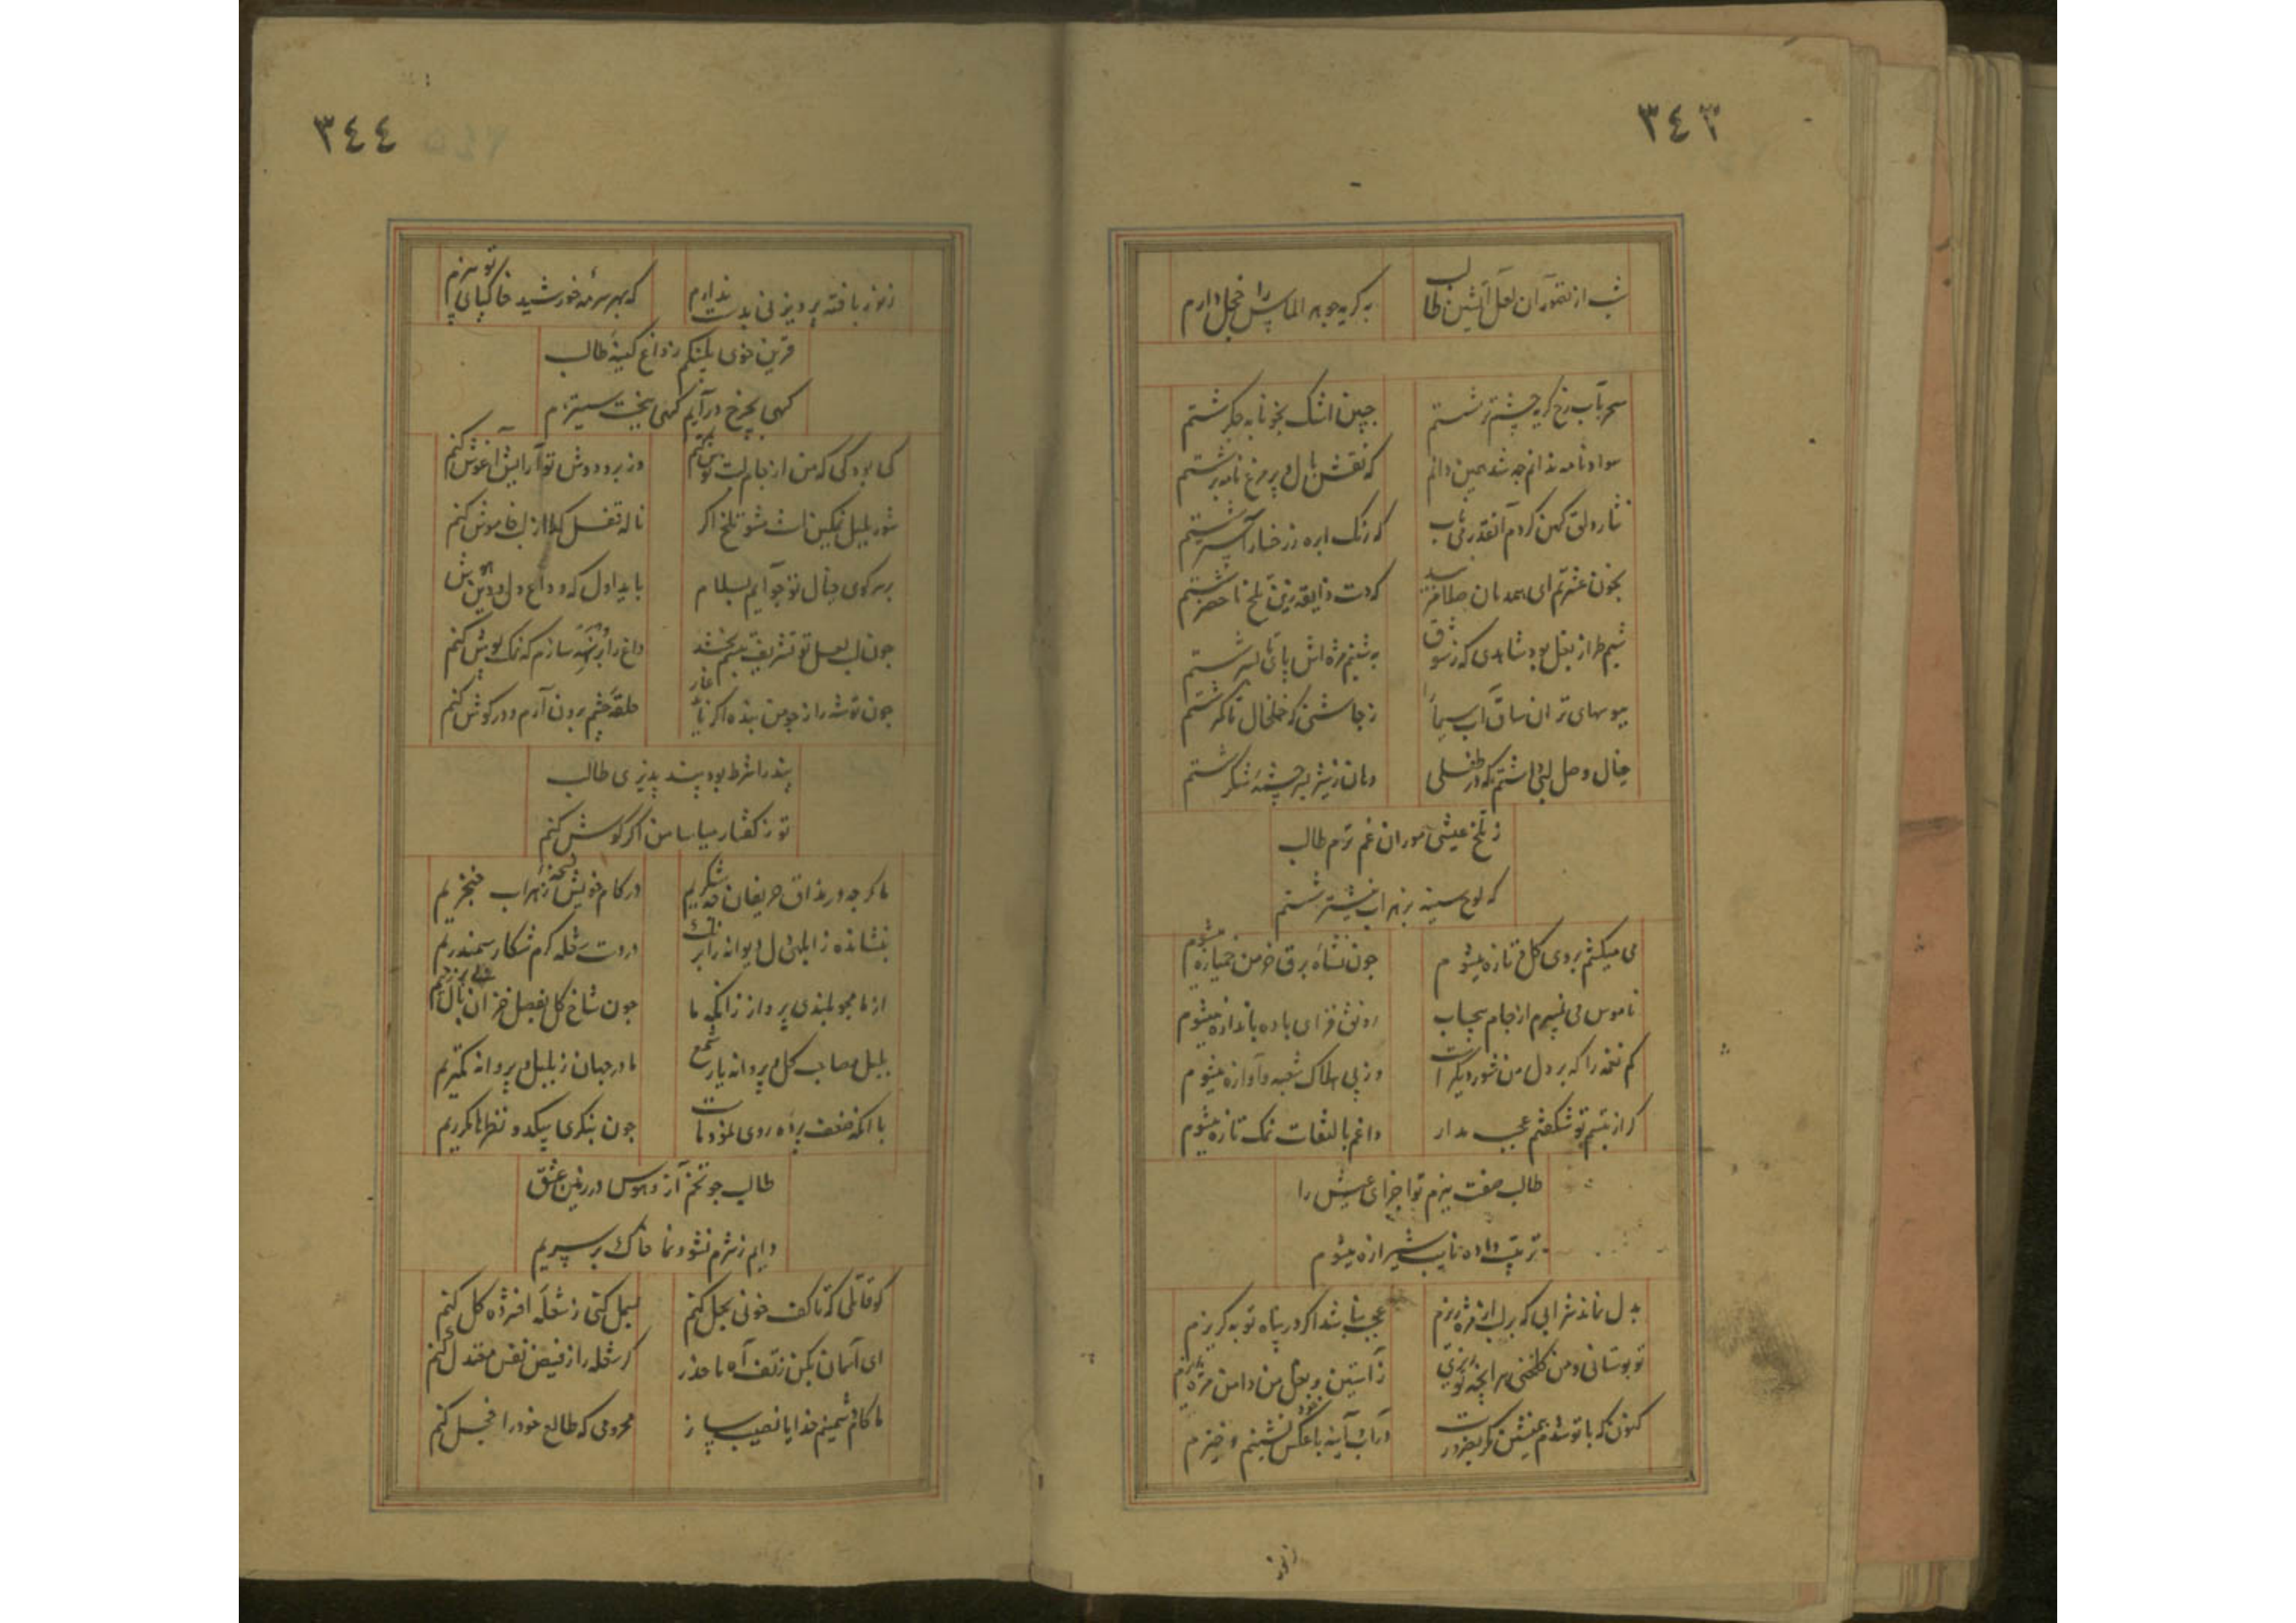 ٣٤٣
شب از تصور آن لعل آتشین طالب
به گریه جوهر الماس را خجل دارم
سحر بآب رخ گریه چشم تر شستم
جبین اشک بخونابه جگر شستم
سواد نامه ندانم چه شد همین دانم
که نقش بال و پر مرغ نامه بر شستم
نثار دلق کهن کردم آنقدر می ناب
که رنگ ابره ز رخسار آستر شستم
بخون عشرتم ای همدمان صلا مزنید
که دست ذایقه زین تلخ ماحضر شستم
شمیم طراز بغل بود شاهدی که ز شوق
به شبنم مژه اش پای تا بسر شستم
ببوسهای تر آن ساق آب سیما را
ز جا شستن که خلخال تا کمر شستم
خیال وصل لبی داشتم که در طفلی
دهان ز شیر بسرچشمه شکر شستم
ز تلخ عیشی موران غم ترم طالب
که لوح سینه بزهراب نیشتر شستم
می میکشم بروی گل و تازه میشوم
چون نشاه برق خرمن خمیازه میشوم
ناموس می نمیبرم از جام بیحساب
رونق فزای باده باندازه میشوم
کم نغمه را که بر دل من شور دیگر است
وز پی هلاک شعبه و آوازه میشوم
گر از تبسم تو شکفتم عجب مدار
داغم بالتفات نمک تازه میشوم
طالب صفت بنرم تو اجزای عیش را
ترتیب داده نایب شیرازه میشوم
بدل نماند شرابی که بر لب از مژه ریزم
عجب نباشد اگر در پناه توبه گریزم
تو بوستانی و من گلخنی هر آنچه تو ریزی
ز آستین و بغل من ز دامن مژه ریزم
کنون که با تو شدم همنشین مگر بضرورت
در آب آینه با عکس خود نشینم و خیزم
زنوز
٣٤٤
ز نور بافته پرویزنی بدست ندارم
که بهر سرمه خورشید خاکپای تو بیزم
قرین خوی پلنگم ز داغ کینه طالب
گهی بچرخ درآیم گهی ببخت ستیزم
کی بود کی که من از جام لبت نوش کنم
وز بر و دوش تو آرایش آغوش کنم
شور بلبل نمکین است مشو تلخ اگر
ناله قفل گله از لب خاموش کنم
بر سر کوی خیال تو چو آیم بسلام
باید اول که وداع دل و دین هوش کنم
چون لب لعل تو تشریف تبسم بخشد
داغ را برهنه سازم که نمک پوش کنم
حلقه چشم برون آرم و در گوش کنم
پند را شرط بود پند پذیری طالب
تو ز گفتار میاسا من اگر گوش کنم
ما گرچه در مذاق حریفان چو شکریم
در کام خویش زهراب خنجریم
در دست شعله گرم شکار سمندریم
از ما مجو بلندی پرواز زانکه ما
چون شاخ گل بفصل خزان بال بی پریم
بلبل مصاحب گل و پروانه یار شمع
ما در جهان ز بلبل و پروانه کمتریم
با آنکه ضعف پرده روی نمود ماست
چون بنگری بپیکد و نظرها مکرریم
طالب چو تخم آز و هوس در زمین عشق
دایم ز شرم نشو و نما خاک بر سریم
کو قاتلی که تا کف خونی بحل کنم
بسمل کنی ز شعله افسرده گل کنم
ای آسمان بکن ز تف آه ما حذر
گر شعله را ز فیض نفس معتدل کنم
ما کام دشمنیم خدایا نصیب ساز
محرومی که طالع خود را خجل کنم